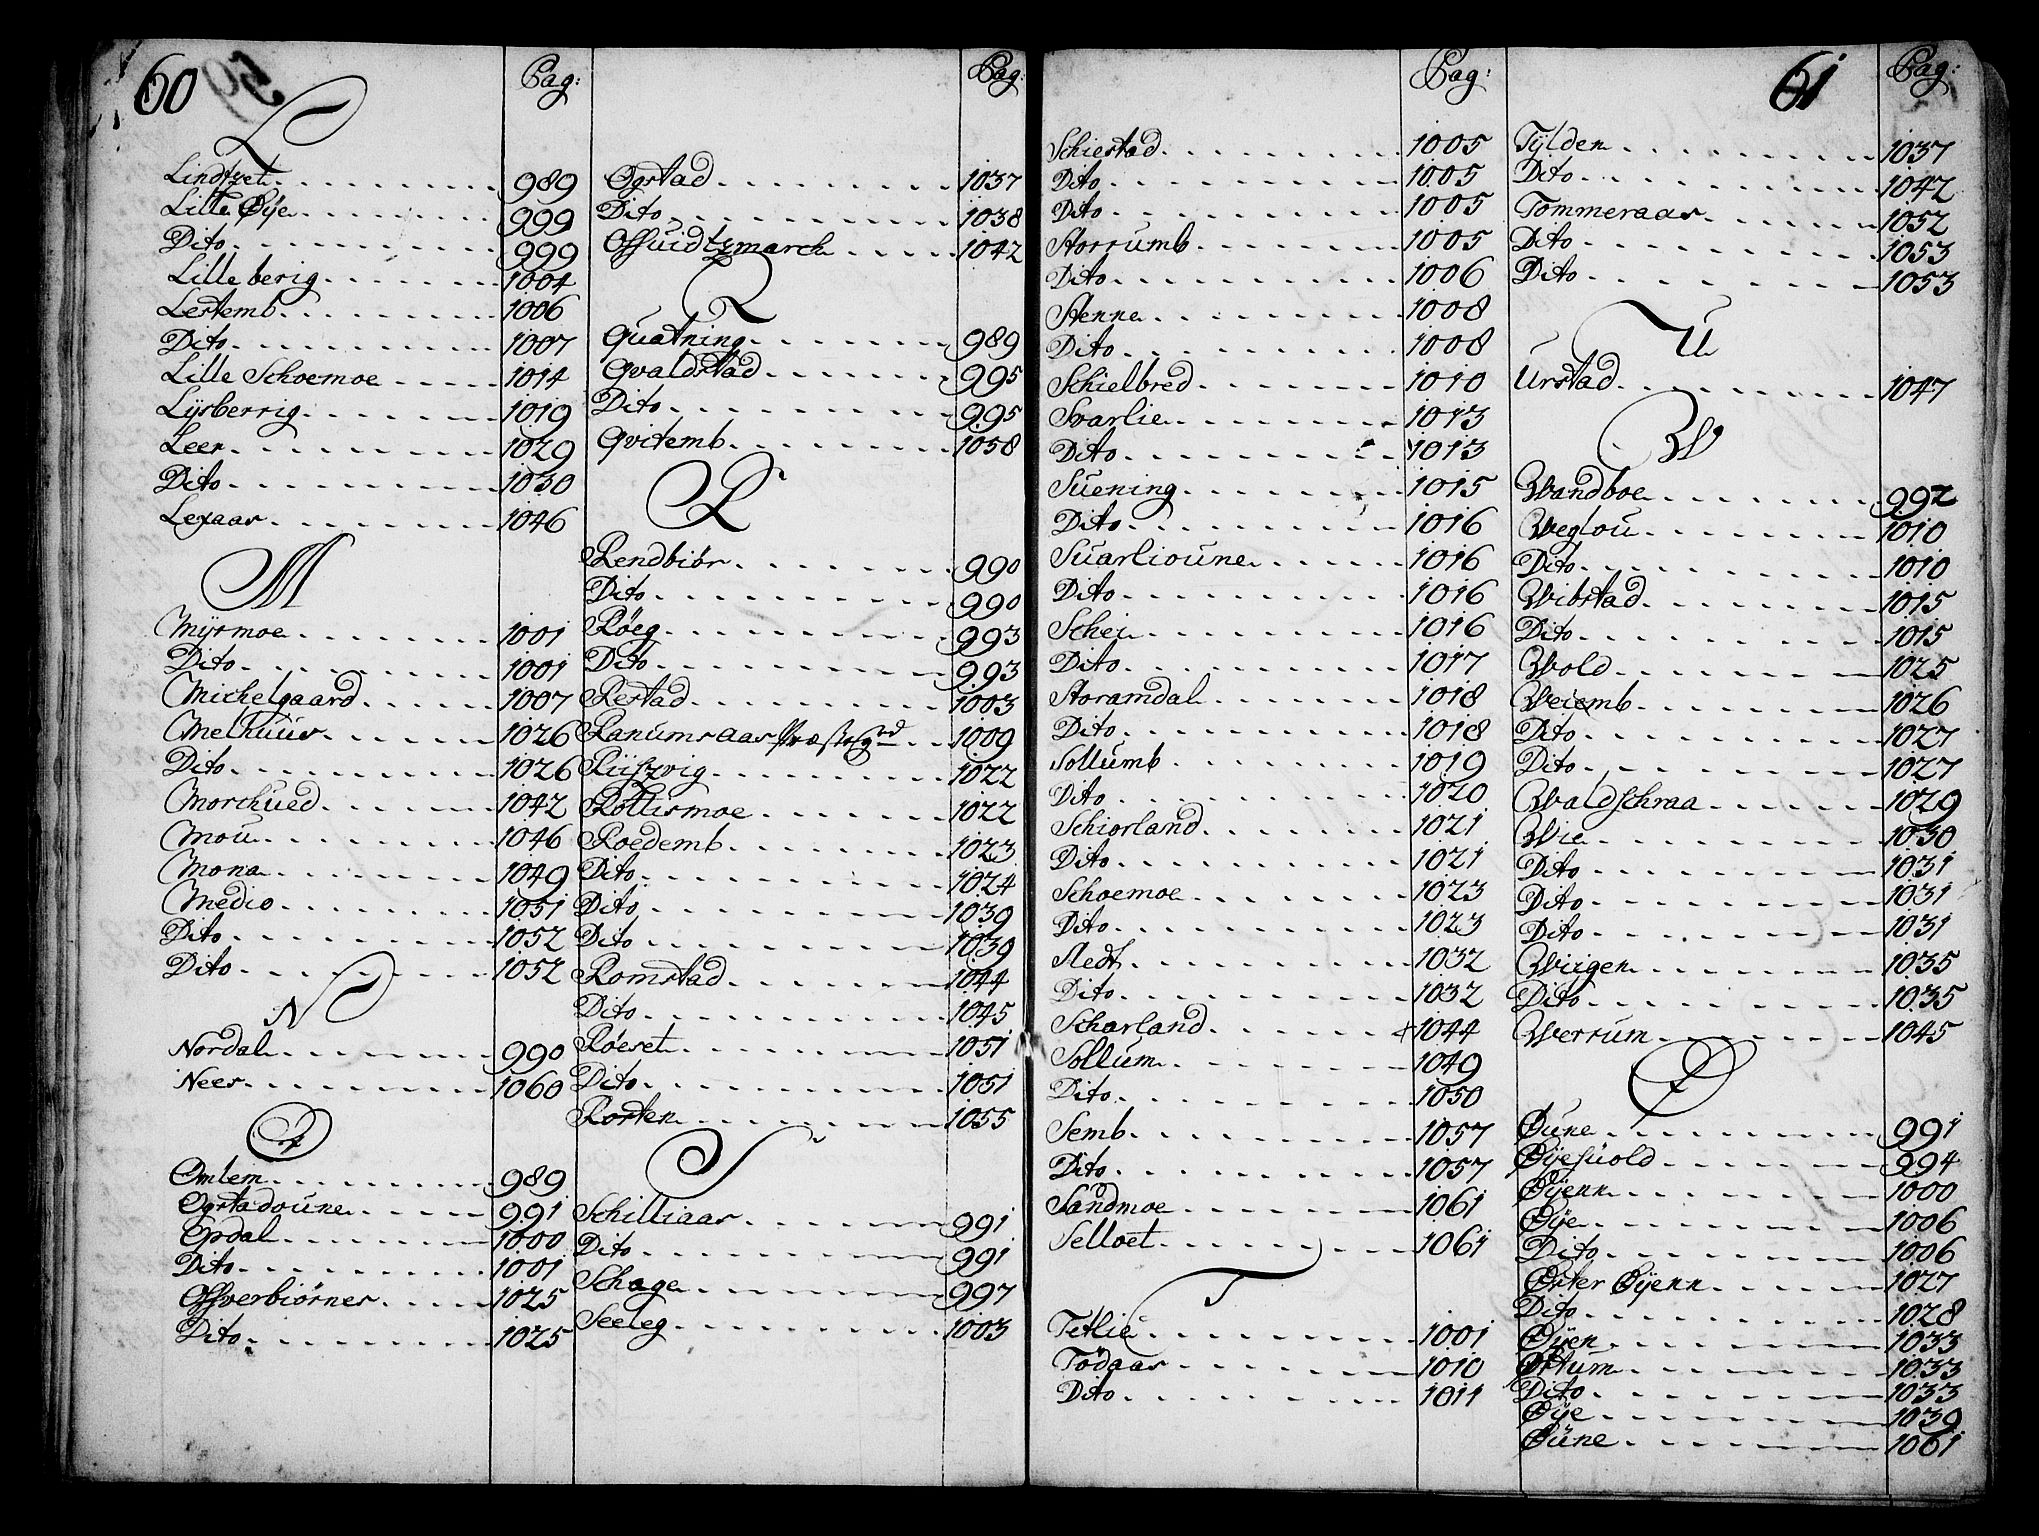 60
Pag:
L
Lindtzet 989
Lille Øye 999
Dito 999
Lille berig 1004
Lertemb 1006
Dito 1007
Lille Schoemoe 1014
Lÿsberrig 1019
Leer 1029
Dito 1030
Lexaas 1046
M
Mÿrmoe 1001
Dito 1001
Michelgaard 1007
Melhuus 1026
Dito 1026
Morchued 1042
Mou 1046
Mona 1049
Medio 1051
Dito 1052
Dito 1052
N
Nordal 990
Neer 1060
O
Omlem 989
Ogstadoune 991
Opdal 1000
Dito 1001
Offverbiørnes 1025
Dito 1025
Pag:
Ogstad 1037
Dito 1038
Offuidtzmarch 1042
Q
Quatning 989
Qvaldstad 995
Dito 995
Qvitemb 1058
R
Rendbiør 990
Dito 990
Røeg 993
Dito 993
Restad 1003
Ranumsaas Præstegrd 1009
Riiszvig 1022
Rottismoe 1022
Roedemb 1023
Dito 1024
Dito 1039
Dito 1039
Romstad 1044
Dito 1045
Røeset 1051
Dito 1051
Rorten 1055
S
Schilliaas 991
Dito 991
Schage 997
Seeleg 1003
Pag:
Schiestad 1005
Dito 1005
Dito 1005
Storrumb 1005
Dito 1006
Stenne 1008
Dito 1008
Schielbred 1010
Svarlie 1013
Dito 1013
Suening 1015
Dito 1016
Suarlioune 1016
Dito 1016
Schei 1016
Dito 1017
Storamdal 1018
Dito 1018
Sollumb 1019
Dito 1020
Schiorland 1021
Dito 1021
Schoemoe 1023
Dito 1023
Sledt 1032
Dito 1032
Scharland 1044
Sollum 1049
Dito 1050
Semb 1057
Dito 1057
Sandmoe 1061
Selloet 1061
T
Tetlie 1001
Tødaas 1010
Dito 1011
61
Pag:
Tÿlden 1037
Dito 1042
Tommeraas 1052
Dito 1053
Dito 1053
U
Urstad 1047
W
Wandboe 992
Weglou 1010
Dito 1010
Wibstad 1015
Dito 1015
Wold 1025
Weiemb 1026
Dito 1027
Dito 1027
Waldschraa 1029
Wie 1030
Dito 1031
Dito 1031
Dito 1031
Wiigen 1035
Dito 1035
Werrum 1045
Ø
Øune 991
Øÿesuold 994
Øÿenn 1000
Øÿe 1006
Dito 1006
Øster Øÿenn 1027
Dito 1028
Øÿen 1033
Østum 1033
Dito 1033
Øÿe 1039
Øune 1061